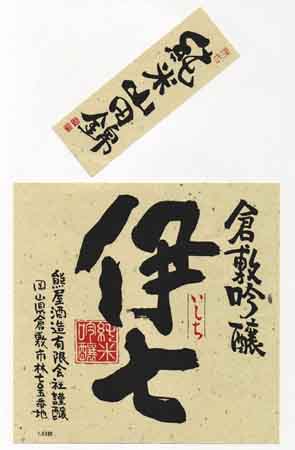 純米山田錦
倉敷吟醸
伊七
いしち
純米
吟醸
熊屋酒造有限会社謹醸
岡山県倉敷市林十五番地